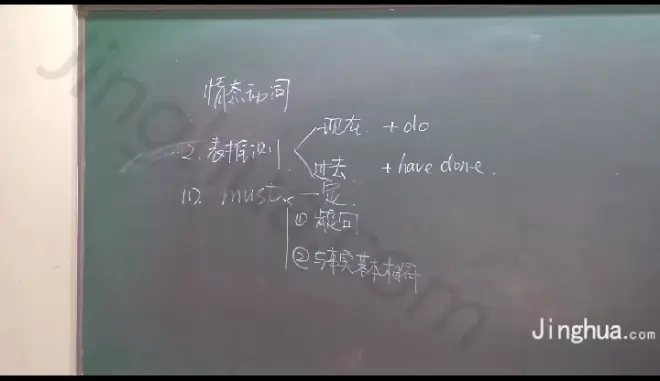 情态动词
2. 表推测
现在 + do
过去 + have done.
(1). must 一定
① 疑问
② 与事实基本相符
Jinghua.com
Jinghua.com